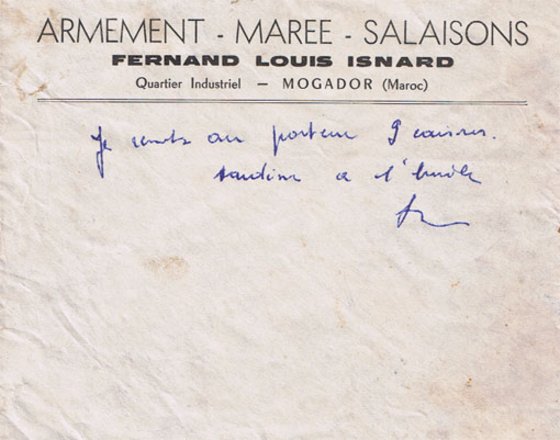 ARMEMENT - MAREE - SALAISONS
FERNAND LOUIS ISNARD
Quartier Industriel — MOGADOR (Maroc)
Je remets au porteur 9 caisses
sardine a l'huile